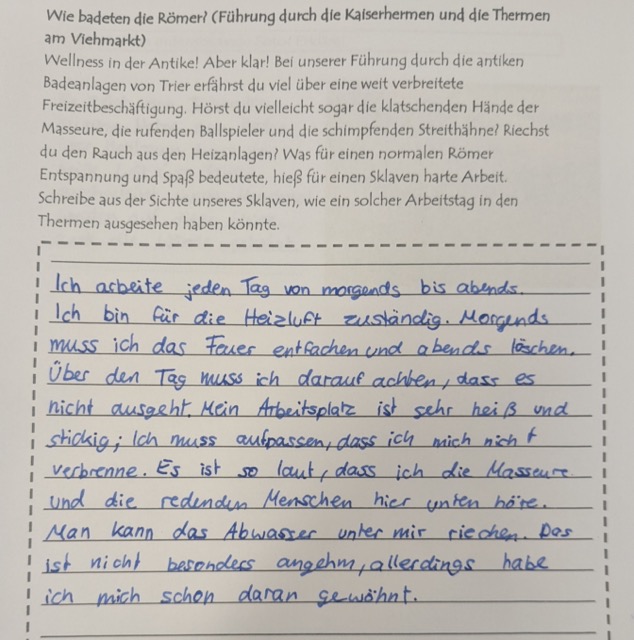 Wie badeten die Römer? (Führung durch die Kaiserhermen und die Thermen
am Viehmarkt)
Wellness in der Antike! Aber klar! Bei unserer Führung durch die antiken
Badeanlagen von Trier erfährst du viel über eine weit verbreitete
Freizeitbeschäftigung. Hörst du vielleicht sogar die klatschenden Hände der
Masseure, die rufenden Ballspieler und die schimpfenden Streithähne? Riechst
du den Rauch aus den Heizanlagen? Was für einen normalen Römer
Entspannung und Spaß bedeutete, hieß für einen Sklaven harte Arbeit.
Schreibe aus der Sichte unseres Sklaven, wie ein solcher Arbeitstag in den
Thermen ausgesehen haben könnte.
Ich arbeite jeden Tag von morgends bis abends.
Ich bin für die Heizluft zuständig. Morgends
muss ich das Feuer entfachen und abends löschen.
Über den Tag muss ich darauf achten, dass es
nicht ausgeht. Mein Arbeitsplatz ist sehr heiß und
stickig; Ich muss aufpassen, dass ich mich nicht
verbrenne. Es ist so laut, dass ich die Masseure
und die redenden Menschen hier unten höre.
Man kann das Abwasser unter mir riechen. Das
ist nicht besonders angehm, allerdings habe
ich mich schon daran gewöhnt.